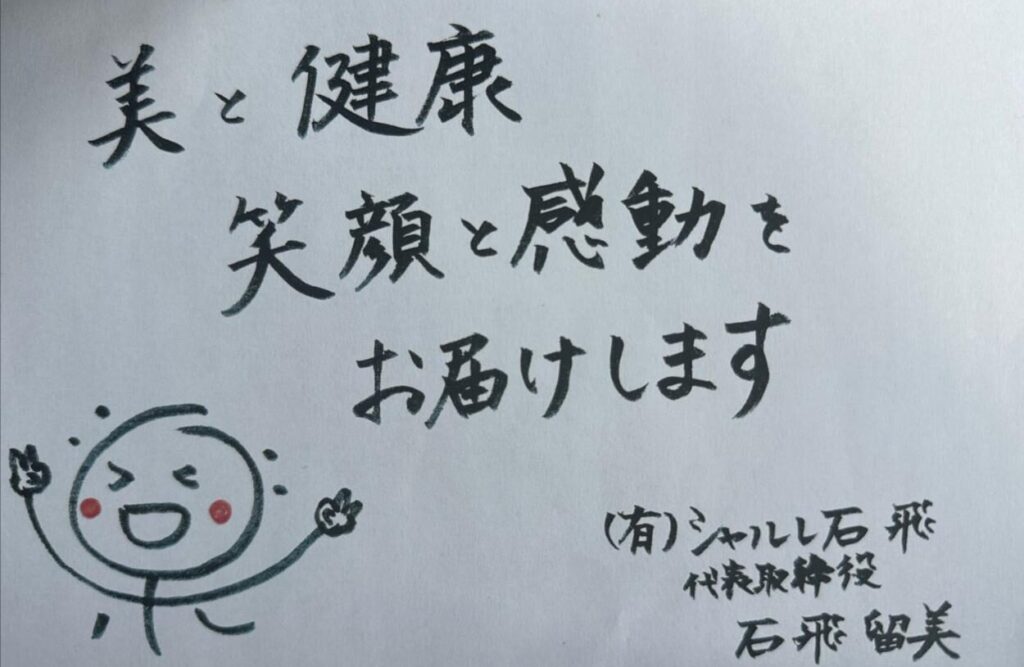 美と健康
笑顔と感動を
お届けします
(有)シャルレ石飛
代表取締役
石飛留美